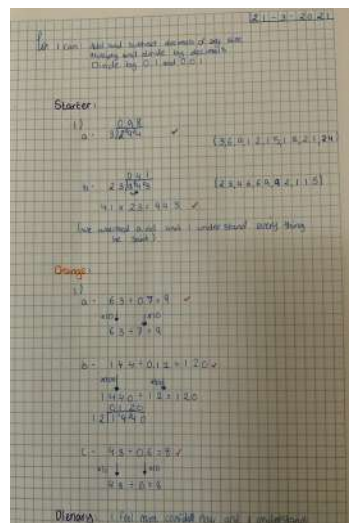 21-3-2021
Lo: I can Add and subtract decimals of any size
Multiply and divide by decimals
Divide by 0.1 and 0.01
Starter:
1)
a-
(3,6,9,12,15,18,21,24)
b-
(23,46,69,92,115)
(we watched a vid and I understand every thing
he said)
Orange:
1)
a- 6.3 ÷ 0.7 = 9 ✓
x10 x10
63 ÷ 7 = 9
b- 14.4 ÷ 0.12 = 120 ✓
1440 ÷ 12 = 120
0120
12 1440
c- 4.8 ÷ 0.6 = 8 ✓
x10 x10
48 ÷ 6 = 8
Plenary I feel more confident now and I understand